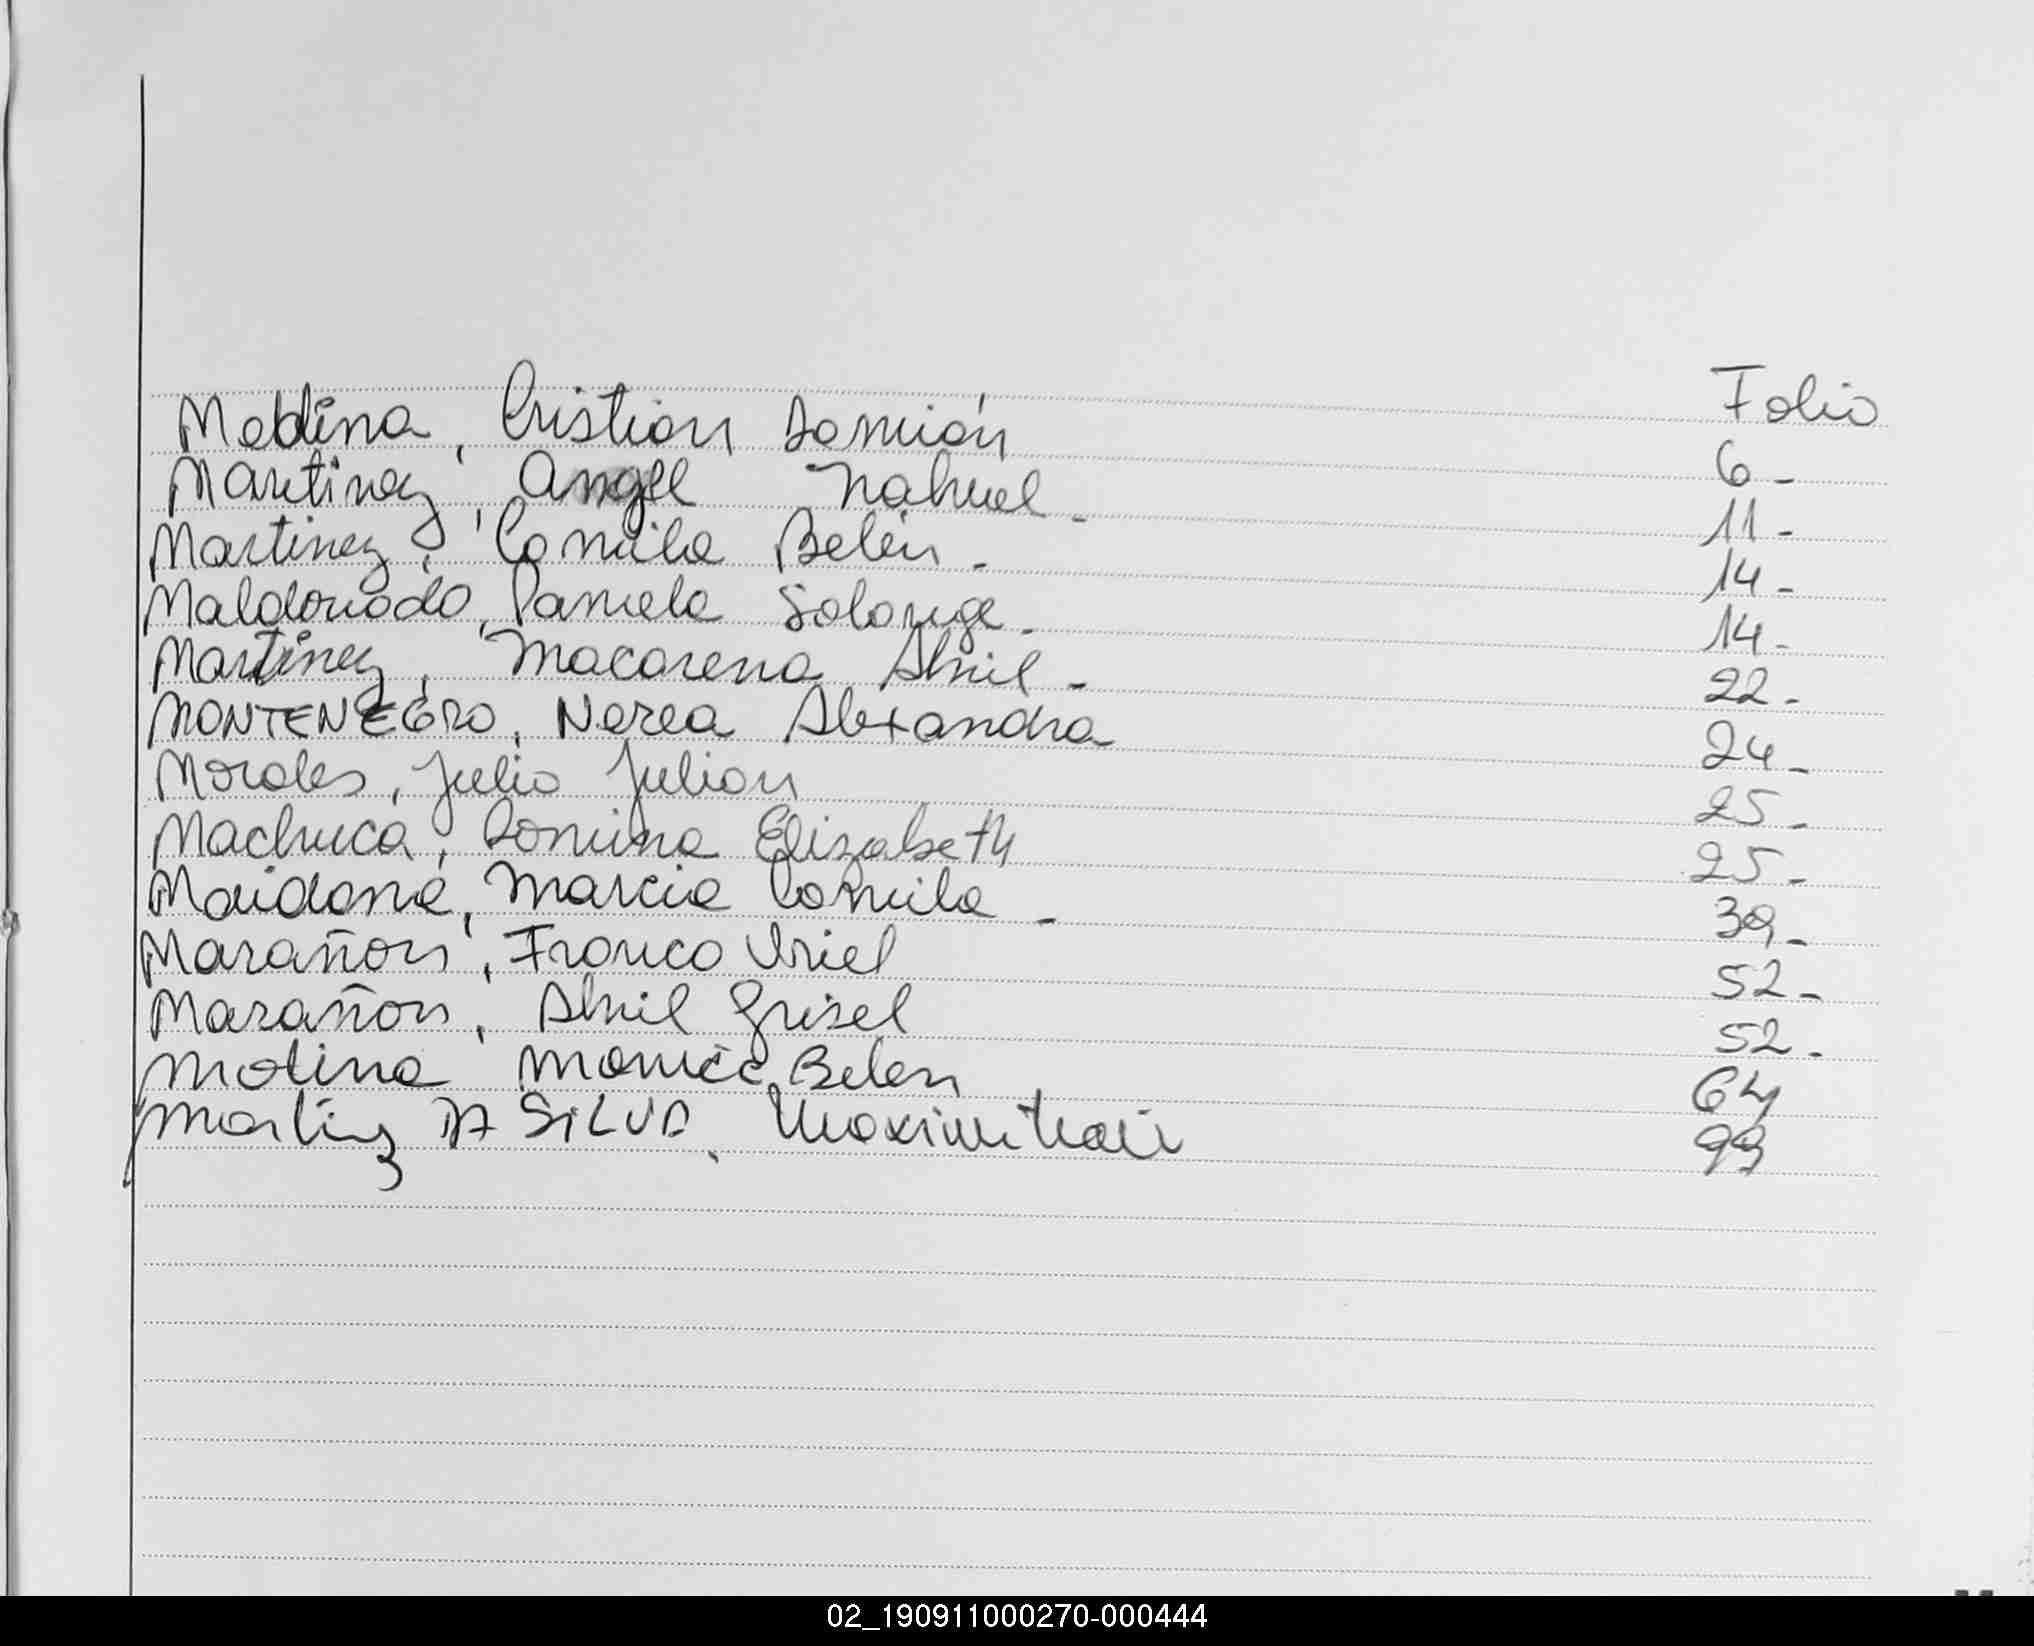 Folio
Medina, Cristian Damián 6-
Martinez, Angel Nahuel- 11-
Martinez, Camila Belén- 14-
Maldonado, Pamela Solange- 14-
Martinez, Macarena Abril- 22-
MONTENEGRO, Nerea Alexandra 24-
Morales, Julio Julian 25-
Machuca, Romina Elizabeth 25-
Maidana, Marcia Camila- 39-
Marañon, Franco Uriel 52-
Marañon, Abril Grisel 52-
Molina Monica Belen 64
DA SILVA, Maximilian 99
02_190911000270-000444